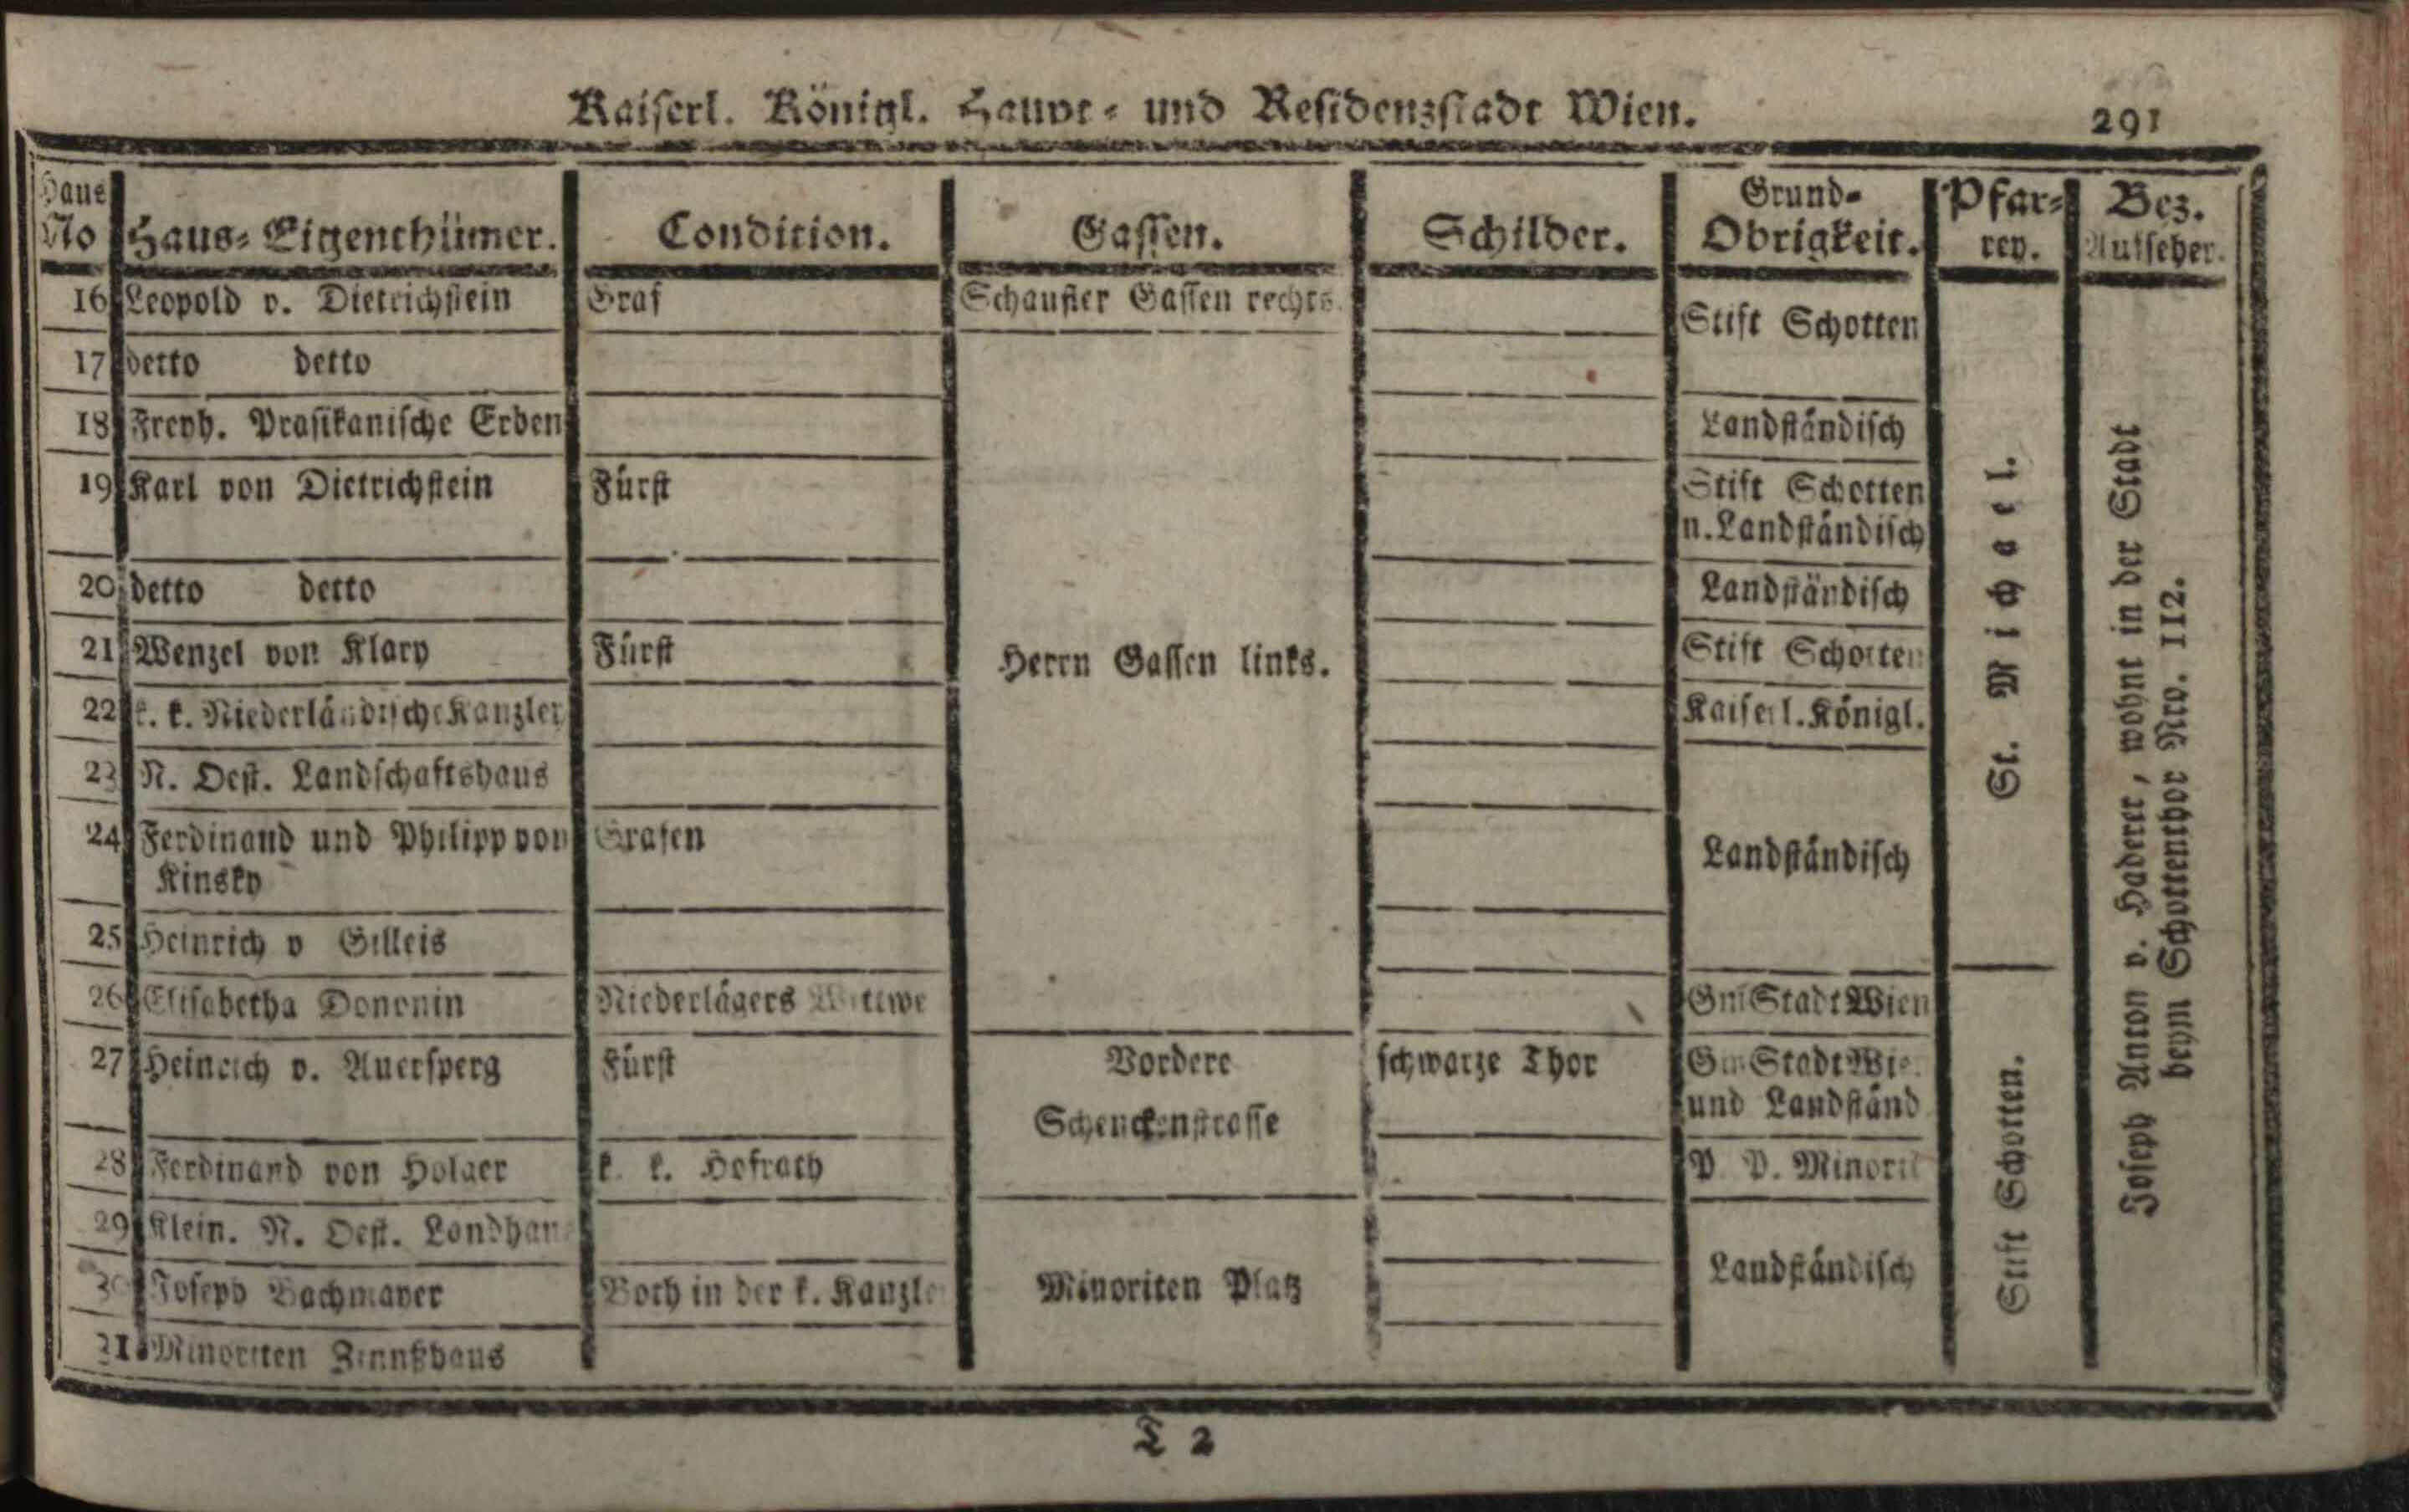 Kaiserl. Königl. Haupt- und Residenzstadt Wien. 291
Haus No Haus-Eigenthümer. Condition. Gassen. Schilder. Grund-Obrigkeit. Pfar-rey. Bez. Aufseher.
16 Leopold v. Dietrichstein Graf Schaufler Gassen rechts. Stift Schotten
17 detto detto
18 Freyh. Prasikanische Erben Landständisch
19 Karl von Dietrichstein Fürst Stift Schotten
n. Landständisch
20 detto detto Landständisch
21 Wenzel von Klary Fürst Herrn Gassen links. Stift Schotten
22 k. k. Niederländische Kanzley Kaiserl. Königl.
23 N. Oest. Landschaftshaus
24 Ferdinand und Philipp von Grafen Landständisch
Kinsky
25 Heinrich v Gilleis
26 Elisabetha Dononin Niederlägers Wittwe Gm Stadt Wien
27 Heinrich v. Auersperg Fürst Vordere schwarze Thor Gm Stadt Wien
und Landständ
Schenckenstrasse
28 Ferdinand von Holger k. k. Hofrath P. P. Minorit
29 Klein. N. Oest. Landhaus
30 Joseph Bachmayer Both in der k. Kanzley Minoriten Platz Landständisch
31 Minoriten Zinnßhaus
St. Michael.
Stift Schotten.
Joseph Anton v. Haderer, wohnt in der Stadt
beym Schottenthor Nro. 112.
T 2